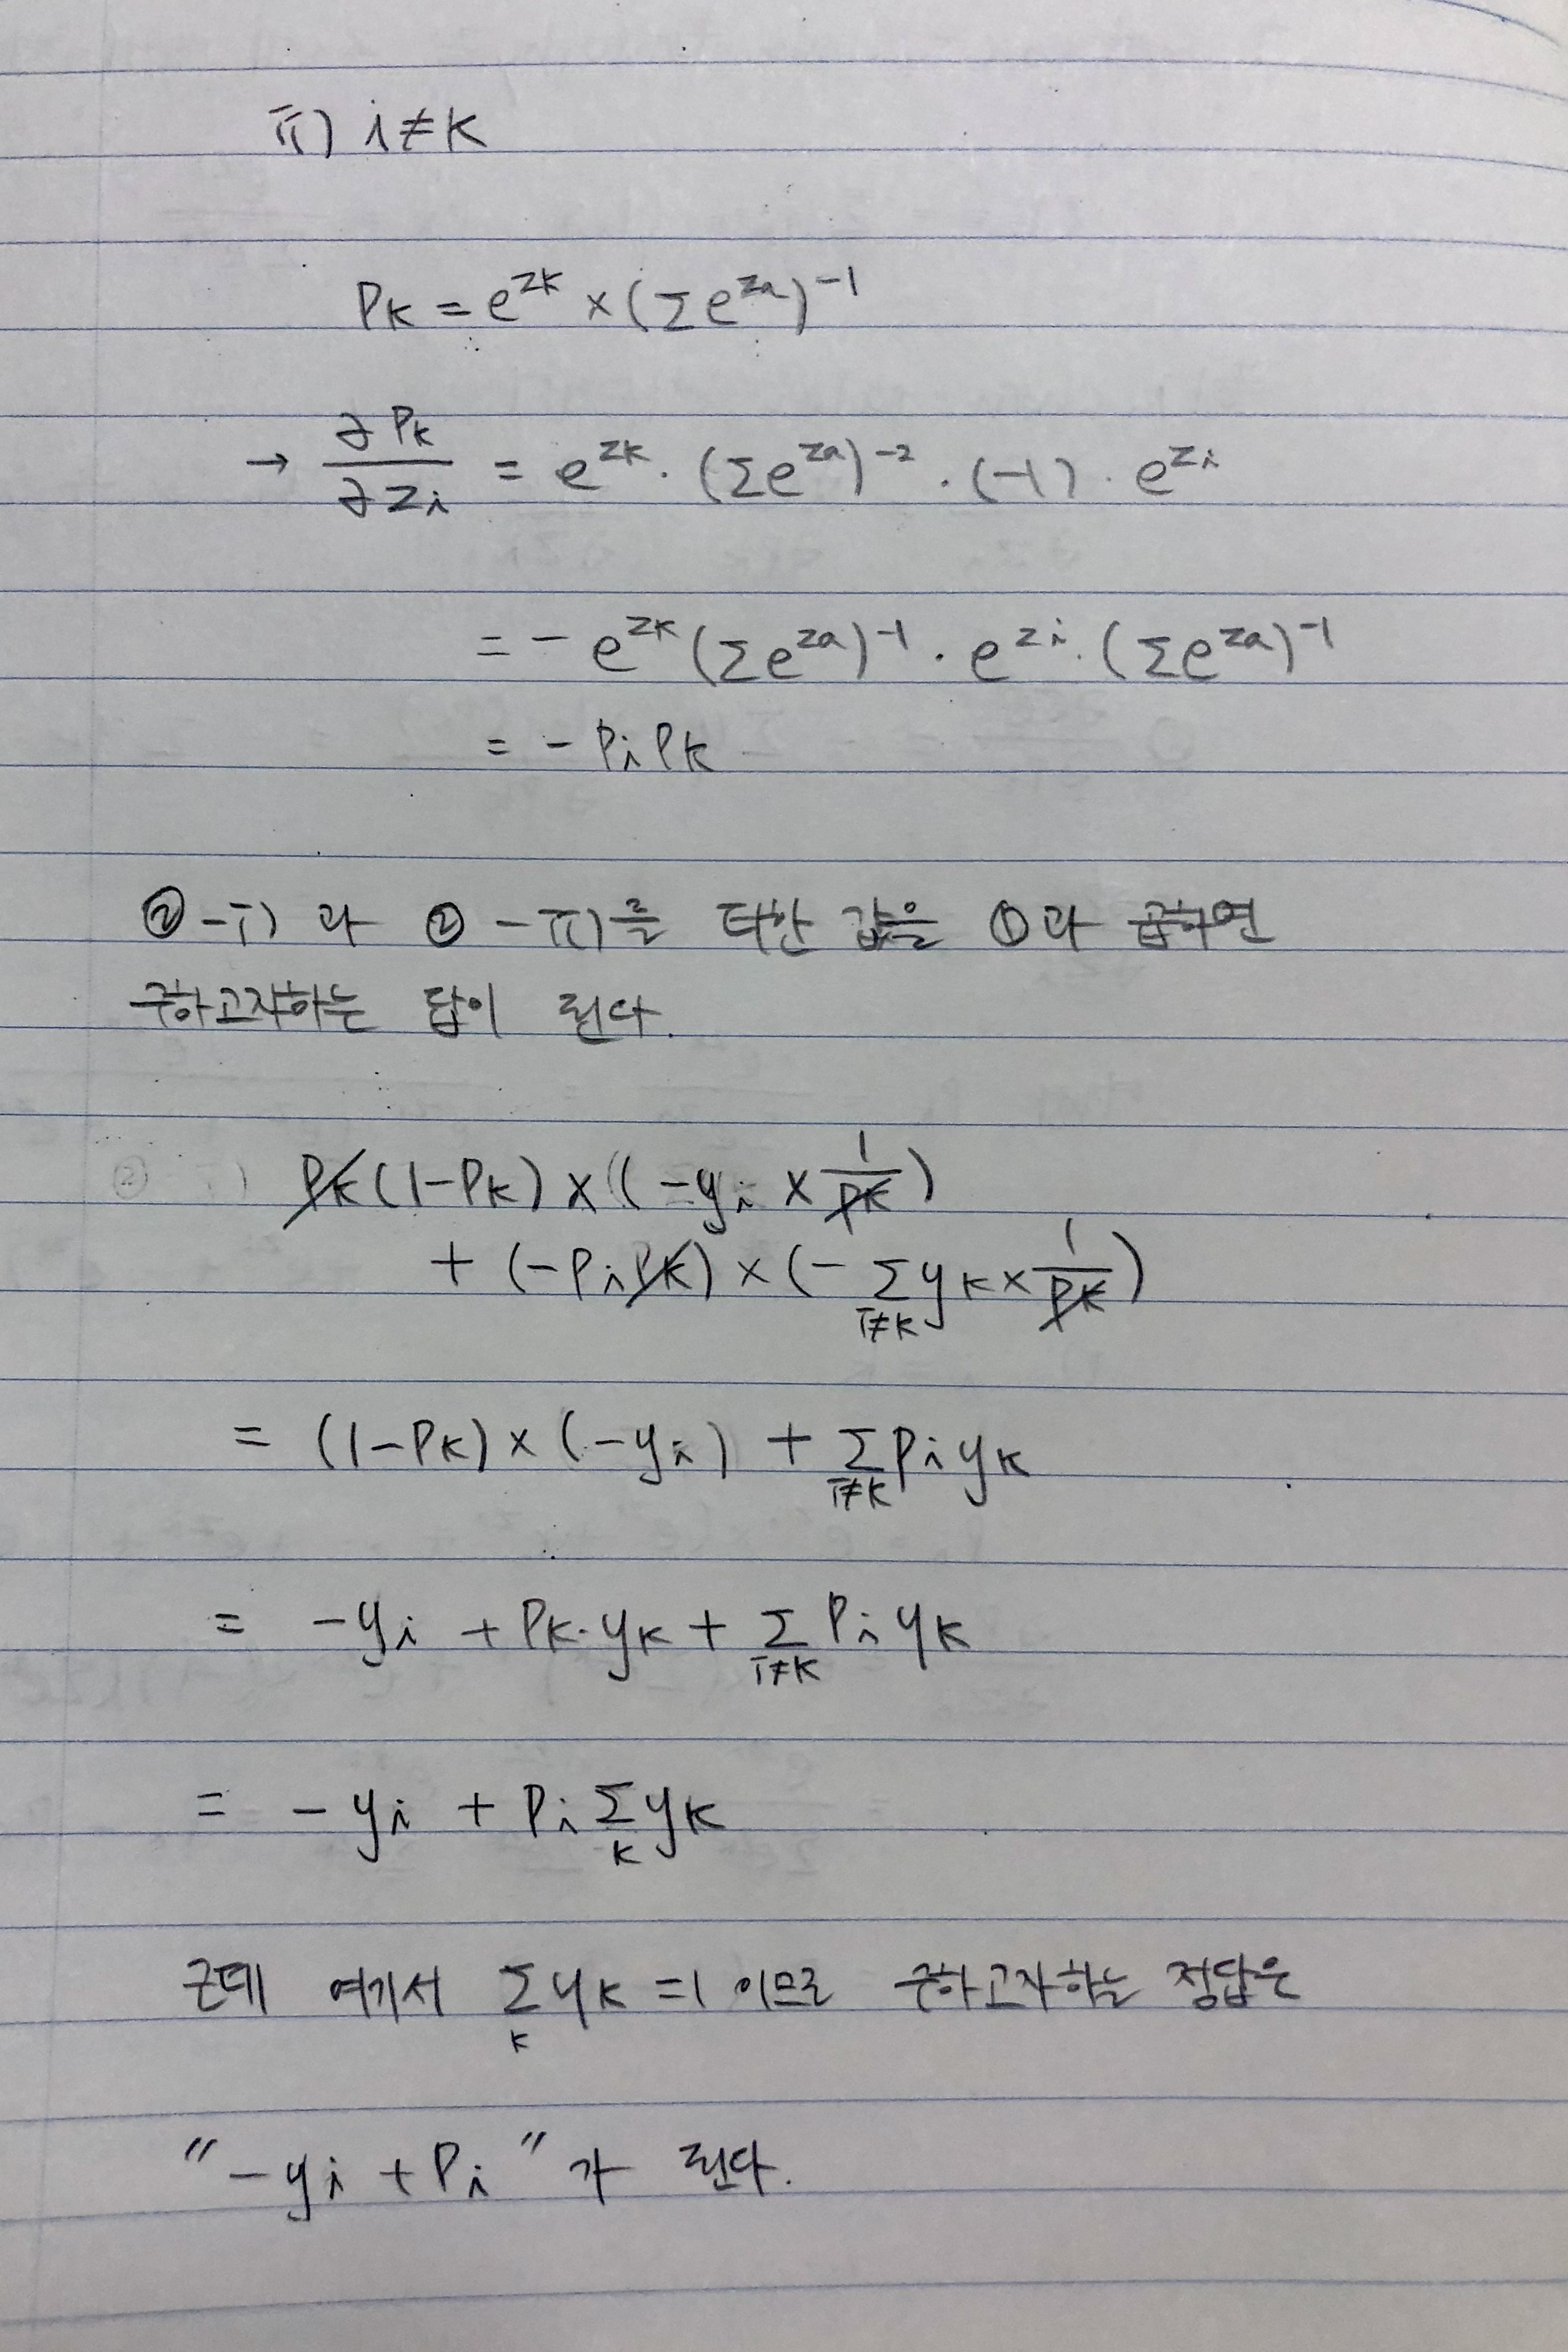 ii) i≠k
Pk = e^zk × (Σe^za)^-1
→ ∂Pk/∂zi = e^zk · (Σe^za)^-2 · (-1) · e^zi
= - e^zk (Σe^za)^-1 · e^zi · (Σe^za)^-1
= - Pi Pk
②-i) 과 ②-ii)를 더한 값을 ①과 곱하면
구하고자하는 답이 된다.
Pk(1-Pk) × (-yi × 1/Pk)
+ (-PiPk) × (- Σ_{i≠k} yk × 1/Pk)
= (1-Pk) × (-yi) + Σ_{i≠k} Pi yk
= -yi + Pk·yk + Σ_{i≠k} Pi yk
= -yi + Pi Σ_k yk
근데 여기서 Σ_k yk = 1 이므로 구하고자하는 정답은
"-yi + Pi" 가 된다.